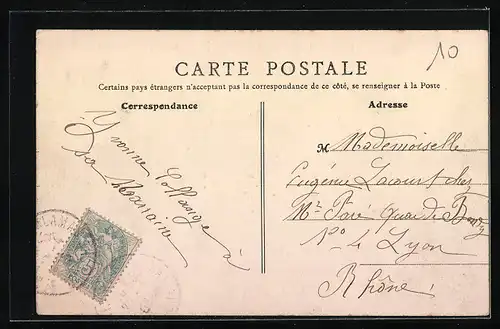 10
CARTE POSTALE
Certains pays étrangers n'acceptant pas la correspondance de ce côté, se renseigner à la Poste
Correspondance
Adresse
Yvonne Collange à
sa Marraine
M Mademoiselle
Eugénie Lacourt chez
Mr Paré Quai de Bondy
Lyon
Rhône